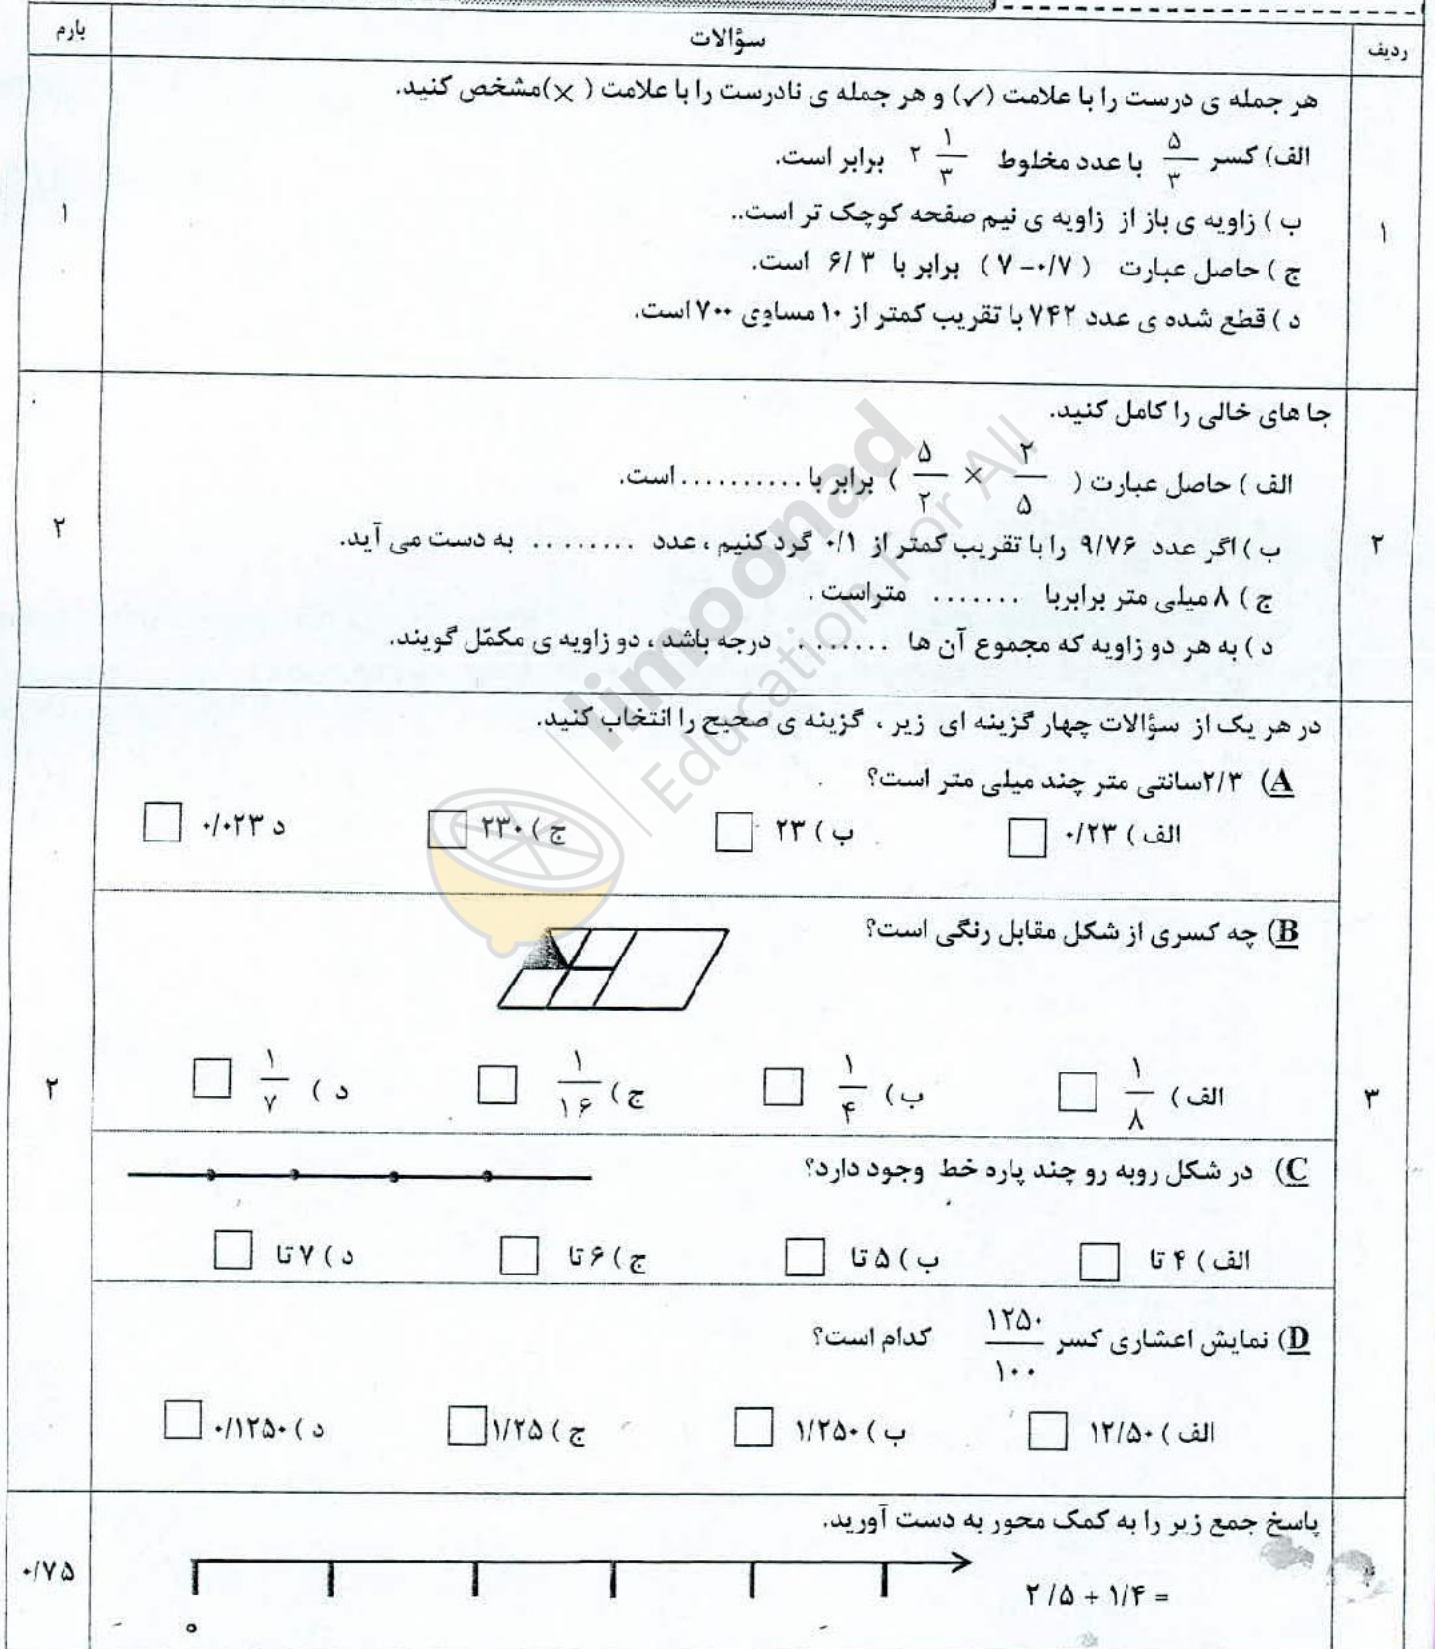 ردیف سؤالات بارم
هر جمله ی درست را با علامت (✓) و هر جمله ی نادرست را با علامت ( ×)مشخص کنید.
الف) کسر ۵/۳ با عدد مخلوط ۲ ۱/۳ برابر است.
ب ) زاویه ی باز از زاویه ی نیم صفحه کوچک تر است..
۱ ۱
ج ) حاصل عبارت ( ۷-۰/۷ ) برابر با ۶/۳ است.
د ) قطع شده ی عدد ۷۴۲ با تقریب کمتر از ۱۰ مساوی ۷۰۰ است.
جا های خالی را کامل کنید.
الف ) حاصل عبارت ( ۲/۵ × ۵/۲ ) برابر با .......... است.
۲ ب ) اگر عدد ۹/۷۶ را با تقریب کمتر از ۰/۱ گرد کنیم ، عدد ........ به دست می آید. ۲
ج ) ۸ میلی متر برابربا ....... متراست .
د ) به هر دو زاویه که مجموع آن ها ........ درجه باشد ، دو زاویه ی مکمّل گویند.
در هر یک از سؤالات چهار گزینه ای زیر ، گزینه ی صحیح را انتخاب کنید.
A) ۲/۳سانتی متر چند میلی متر است؟
الف ) ۰/۲۳ ب ) ۲۳ ج ) ۲۳۰ د ۰/۰۲۳
B) چه کسری از شکل مقابل رنگی است؟
۳ الف ) ۱/۸ ب ) ۱/۴ ج ) ۱/۱۶ د ) ۱/۷ ۲
C) در شکل روبه رو چند پاره خط وجود دارد؟
الف ) ۴ تا ب ) ۵ تا ج ) ۶ تا د ) ۷ تا
D) نمایش اعشاری کسر ۱۲۵۰/۱۰۰ کدام است؟
الف ) ۱۲/۵۰ ب ) ۱/۲۵۰ ج ) ۱/۲۵ د ) ۰/۱۲۵۰
پاسخ جمع زیر را به کمک محور به دست آورید.
۲/۵ + ۱/۴ = ۰/۷۵
۰
limoonad
Education For All